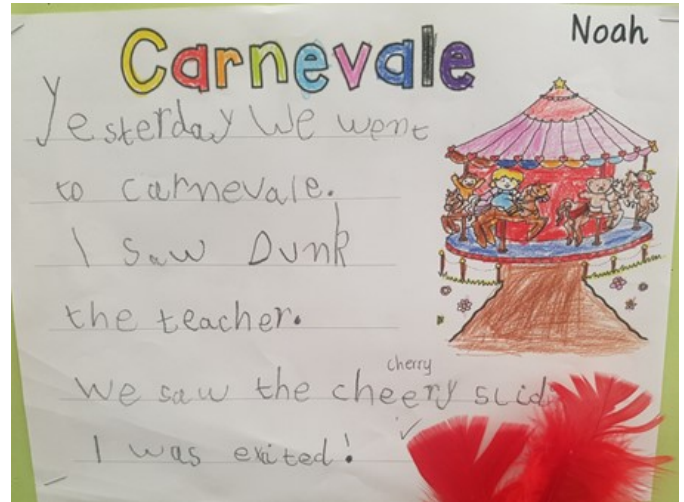 Carnevale
Noah
Yesterday We went
to carnevale.
I saw Dunk
the teacher.
cherry
We saw the cheery slid
I was exited!